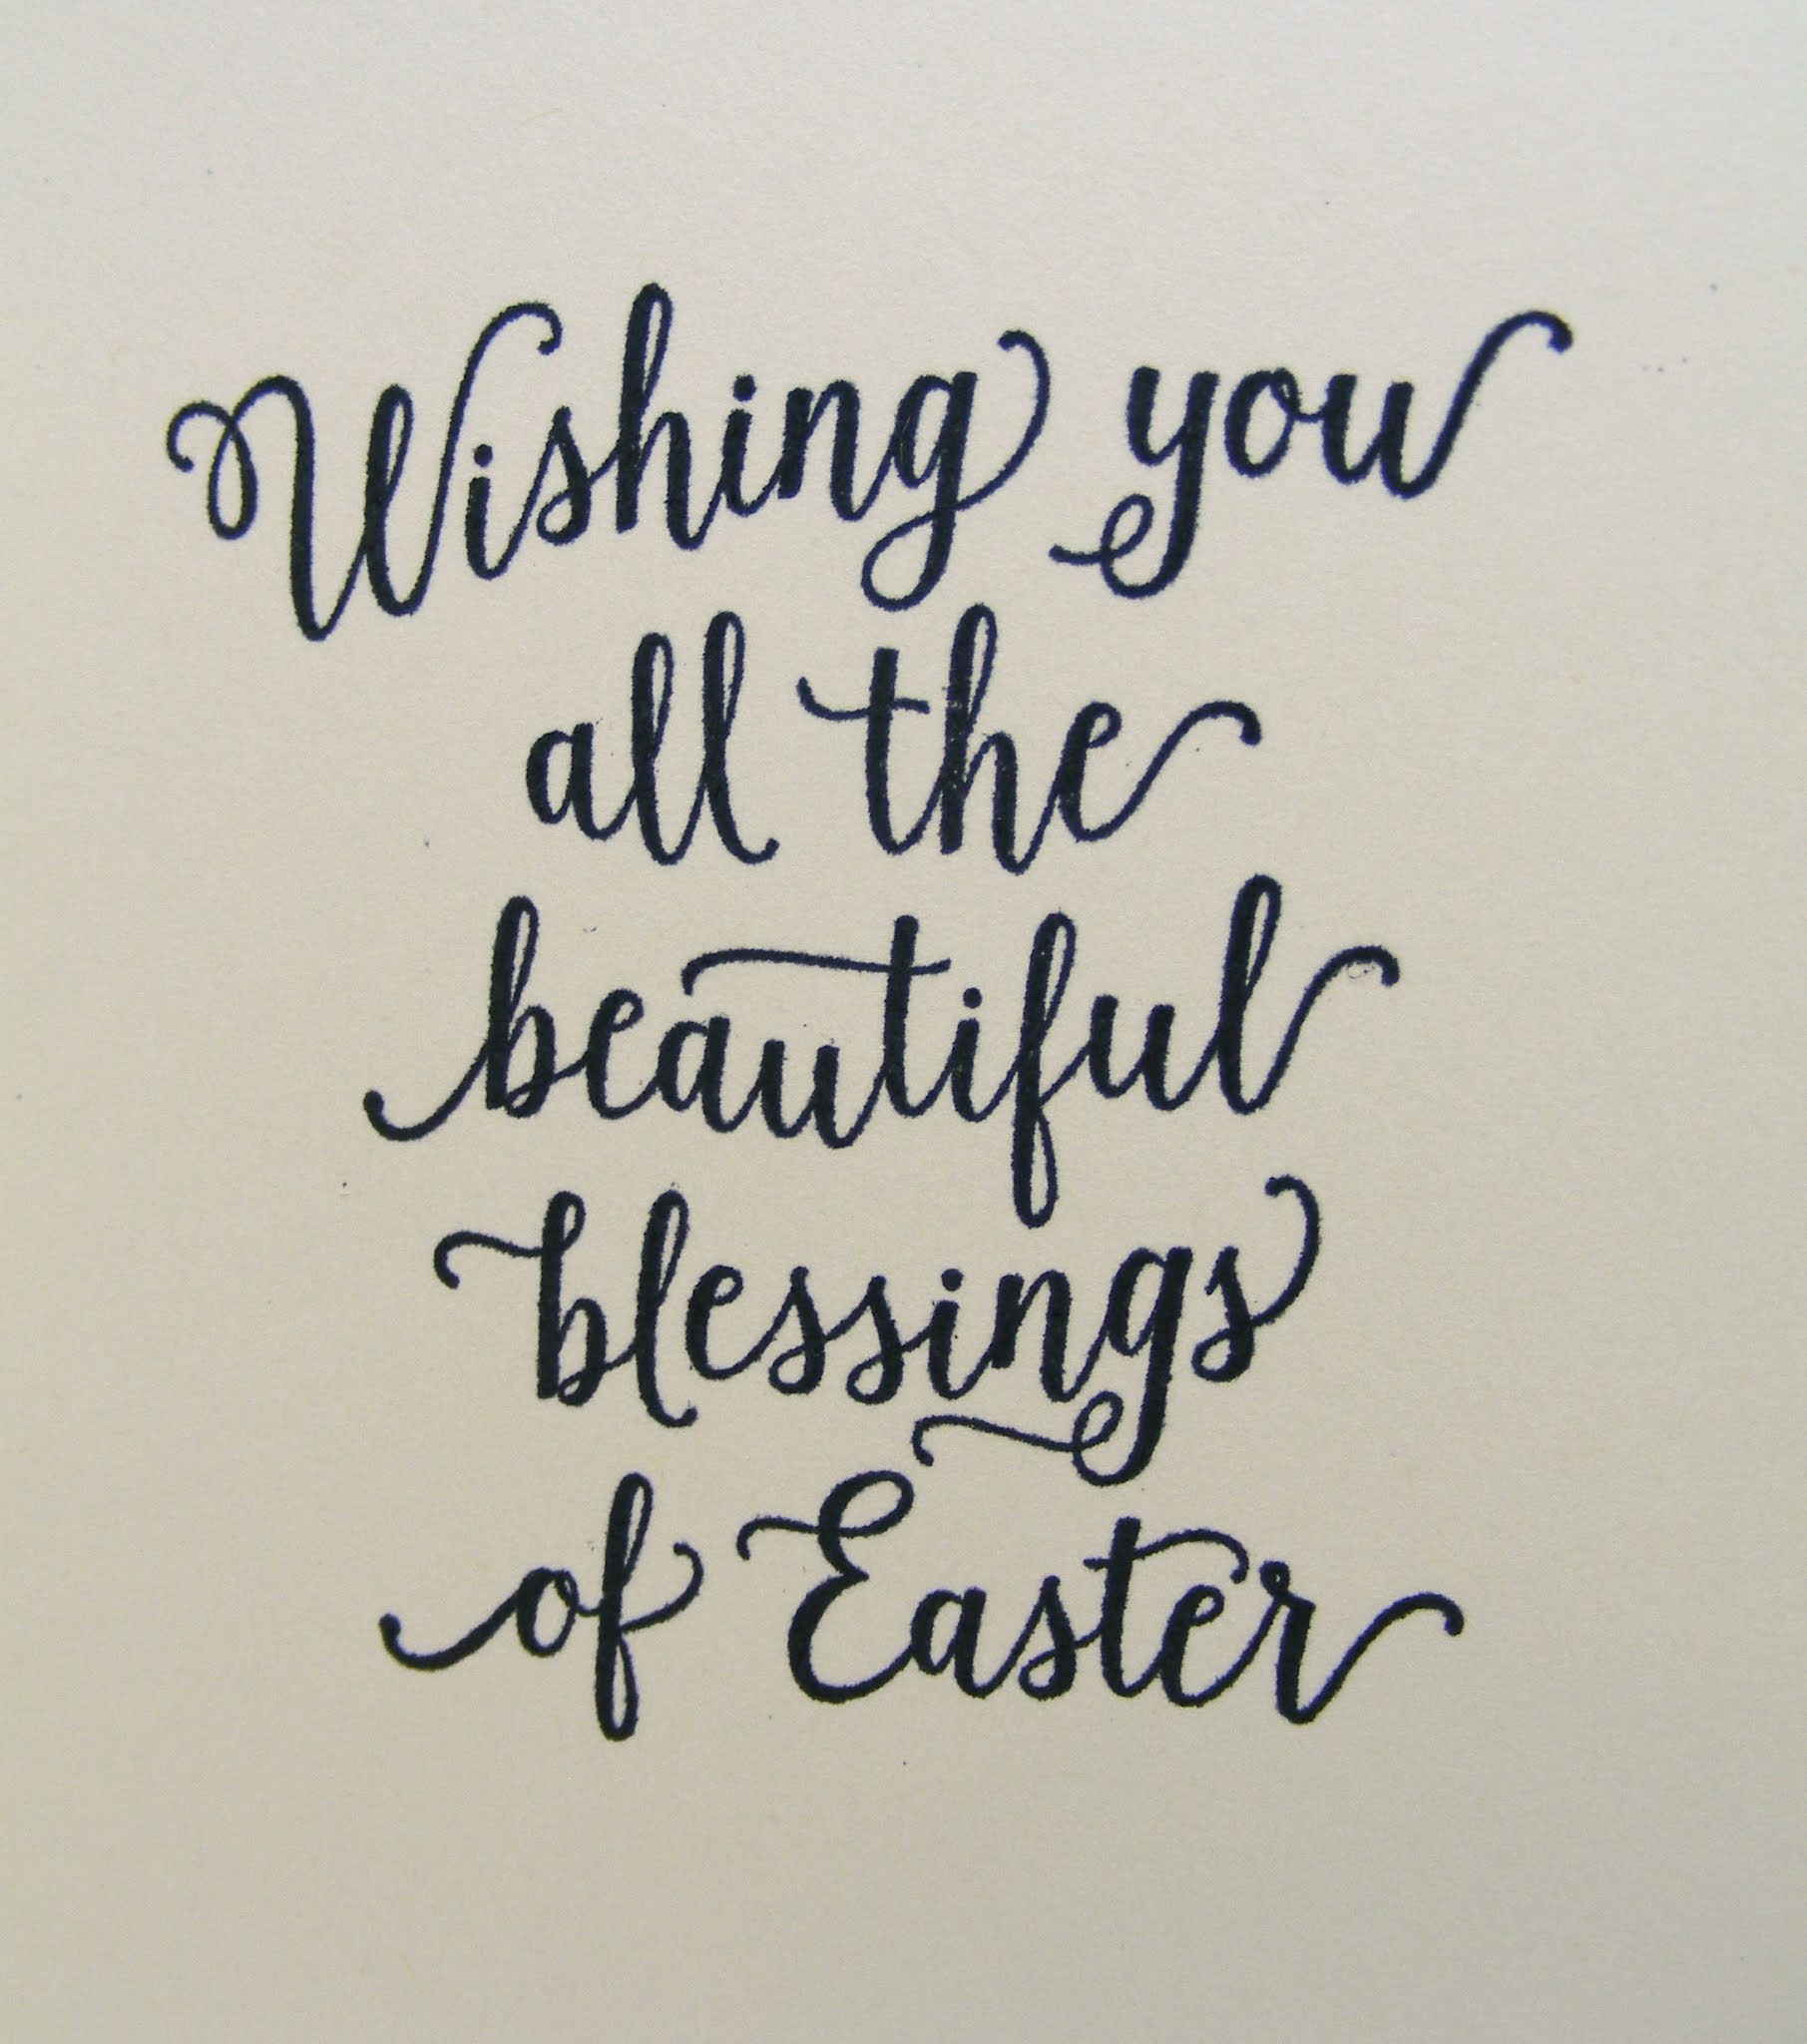 Wishing you
all the
beautiful
blessings
of Easter